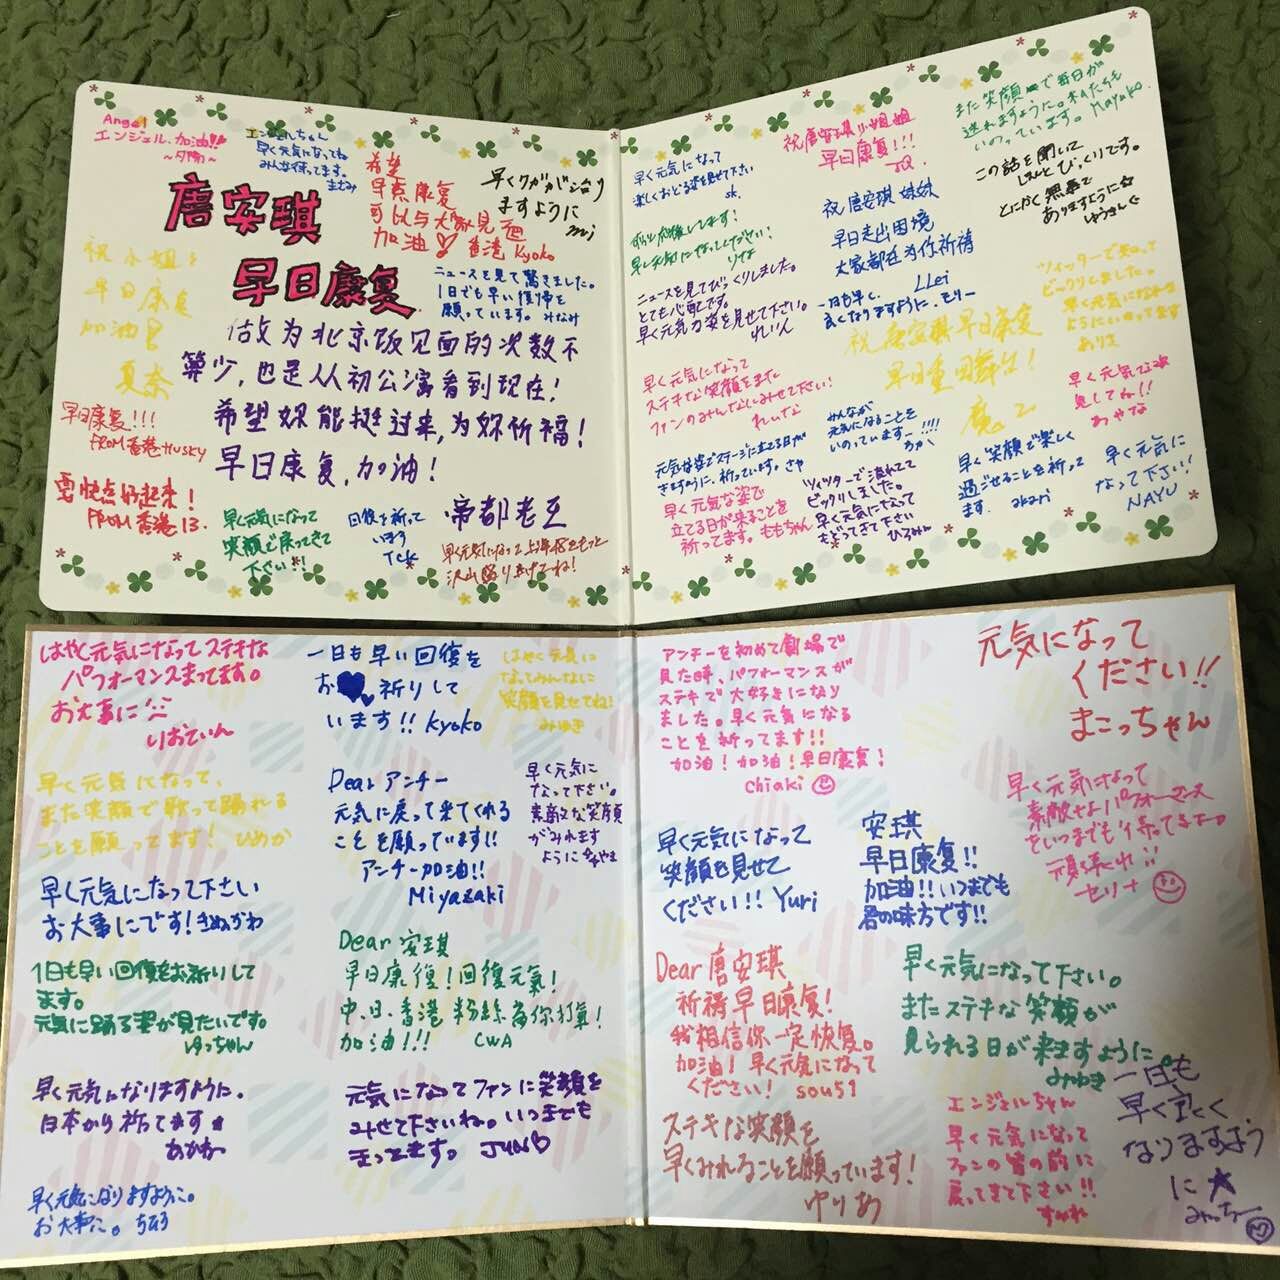 Angel
エンジェル、加油!!
エンジェルちゃん
早く元気になってね
みんな待ってます。
まなみ
希望
早点康复
可以与大家见面
加油♡ 香港 Kyoko
早くケガが治り
ますように
mi
唐安琪
早日康复
祝小姐姐
早日康复
加油
夏奈
ニュースを見て驚きました。
1日でも早い復帰を
願っています。みなみ
做为北京饭见面的次数不
算少,也是从初公演看到现在!
希望妳能挺过来,为妳祈福!
早日康复,加油!
帝都老王
早日康复!!!
FROM香港HUSKY
要快点好起来!
FROM香港13.
早く元気になって
笑顔で戻ってきて
下さい!!
回復を祈って
います
TCK
早く元気になって
沢山踊りあげてね!
早く元気になって
楽しくおどる姿を見せて下さい
sk.
祝唐安琪小姐姐
早日康复!!!
JQ.
また笑顔で毎日が
送れますように。私たちも
いのっています。Mayuko.
ずっと応援してます!
早く元気になってください!
りな
祝唐安琪妹妹
早日走出困境
大家都在为你祈祷
LLei
この話を聞いて
ほんとびっくりです。
とにかく無事で
ありますように☆
ゆうきんぐ
ニュースを見てびっくりしました。
とても心配です。
早く元気な姿を見せて下さい。
れいん
一日も早く、
良くなりますように、モリー
ツィッターで知って
ビックリしました。
早く元気になれる
ようにいのってます
ありさ
祝唐安琪早日康复
早日重回舞台!
魔乙
早く元気になって
ステキな笑顔をまた
ファンのみんなにみせて下さい!
れいな
みんなが
元気になることを
いのっています!!!!
早く元気な姿
見してね!!
あやな
元気な姿でステージに立てる日が
きますように、祈っています。さや
早く元気な姿で
立てる日が来ることを
祈ってます。ももちゃん
ツィッターで流れてて
ビックリしました。
早く元気になって
もどってきて下さい
ひろみん
早く笑顔で楽しく
過ごせることを祈って
ます。akari
早く元気に
なって下さい!!
NAYU
はやく元気になってステキな
パフォーマンスまってます。
お大事に
りおてぃん
一日も早い回復を
お祈りして
います!! Kyoko
はやく元気に
なってみんなに
笑顔を見せてね!
みゆき
アンチーを初めて劇場で
見た時、パフォーマンスが
ステキで大好きになり
ました。早く元気になる
ことを祈ってます!!
加油!加油!早日康复!
Chiaki
元気になって
ください!!
まこっちゃん
早く元気になって、
また笑顔で歌って踊れる
ことを願ってます!ひめか
Dear アンチー
元気に戻って来てくれる
ことを願っています!!
アンチー加油!!
Miyazaki
早く元気に
なって下さい。
素敵な笑顔
がみれます
ように あやき
早く元気になって
笑顔を見せて
ください!! Yuri
安琪
早日康复!!
加油!!いつまでも
君の味方です!!
早く元気になって
素敵なパフォーマンス
をいつまでも待ってるよ。
セリナ
早く元気になって下さい
お大事にです!きぬがわ
1日も早い回復をお祈りして
ます。
元気に踊る姿が見たいです。
ゆっちゃん
Dear 安琪
早日康復!回復元氣!
中、日、香港粉絲為你打算!
加油!!! CWA
Dear 唐安琪
祈祷早日康复!
我相信你一定恢复。
加油!早く元気になって
ください! sou51
早く元気になって下さい。
またステキな笑顔が
見られる日が来ますように。
みゆき
早く元気になりますように。
日本から祈ってます★
あやか
元気になってファンに笑顔を
みせて下さいね。いつまでも
まってます。JUN♡
ステキな笑顔を
早くみれることを願っています!
ゆりあ
エンジェルちゃん
早く元気になって
ファンの皆の前に
戻ってきて下さい!!
すみれ
一日も
早く良く
なりますよう
に★
みっちー
早く元気になりますように。
お大事に。ちひろ